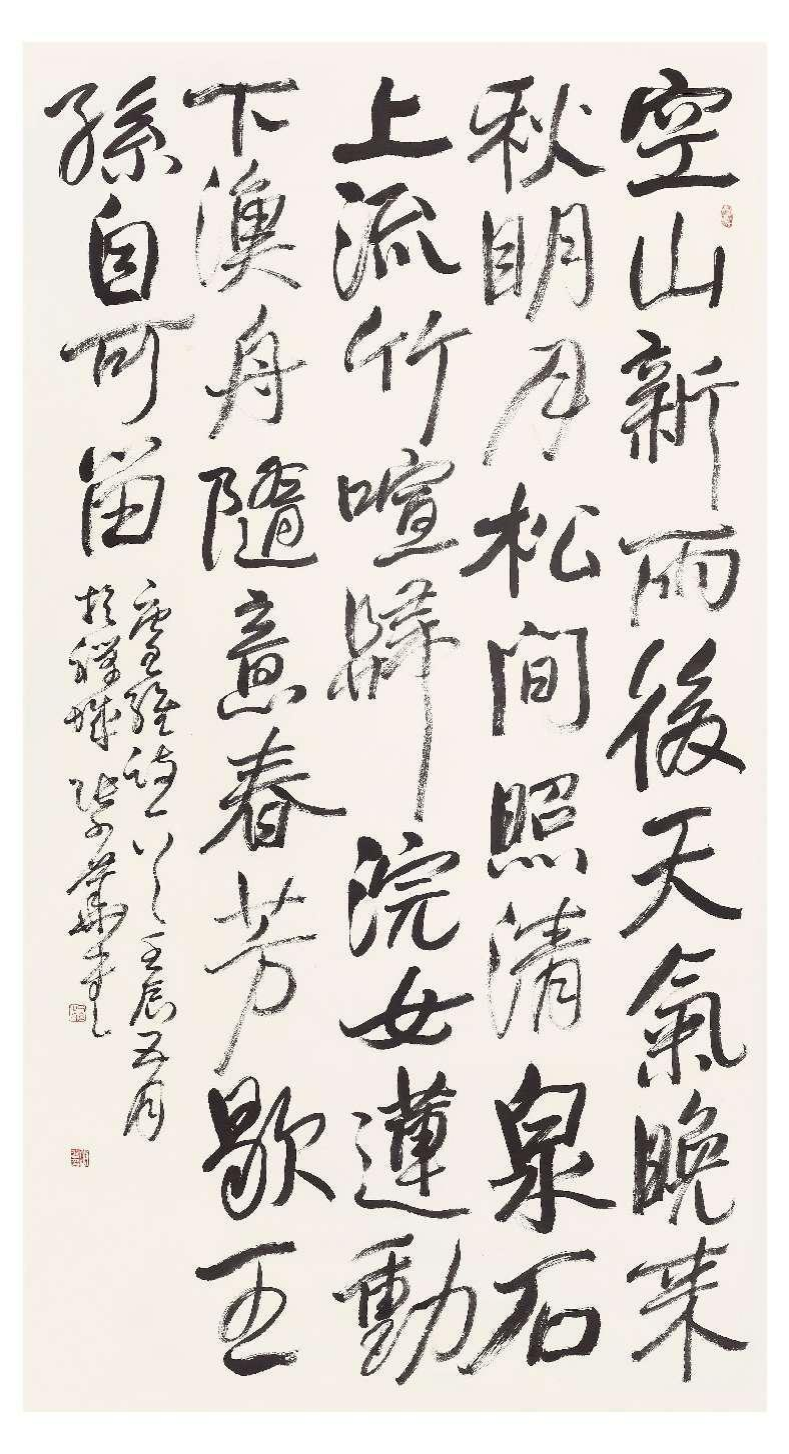 空山新雨後天氣晚来
秋明月松間照清泉石
上流竹喧歸浣女蓮動
下漁舟隨意春芳歇王
孫自可留
唐王維诗一首壬辰五月
於禪城華书